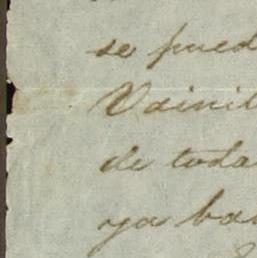 se pued
Vainil
de toda
ya bas